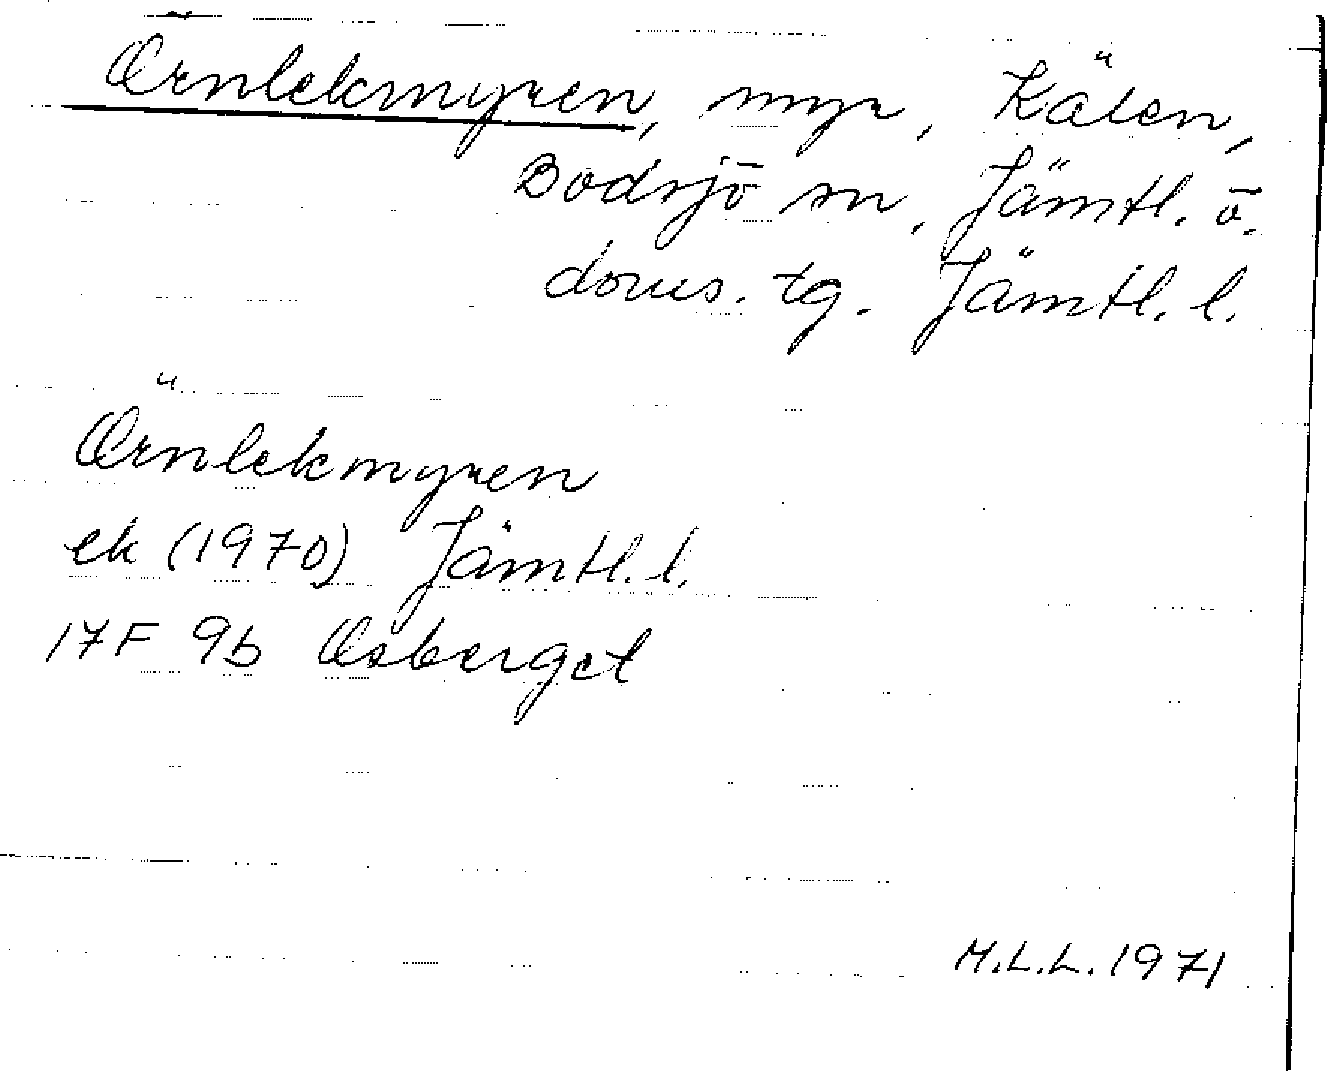 Örnlekmyren, myr, Kälen,
Bodsjö sn, Jämtl. ö.
doms. tg. Jämtl. l.
Örnlekmyren
ek (1970) Jämtl. l.
17F 9b Osberget
M.L.L. 1971